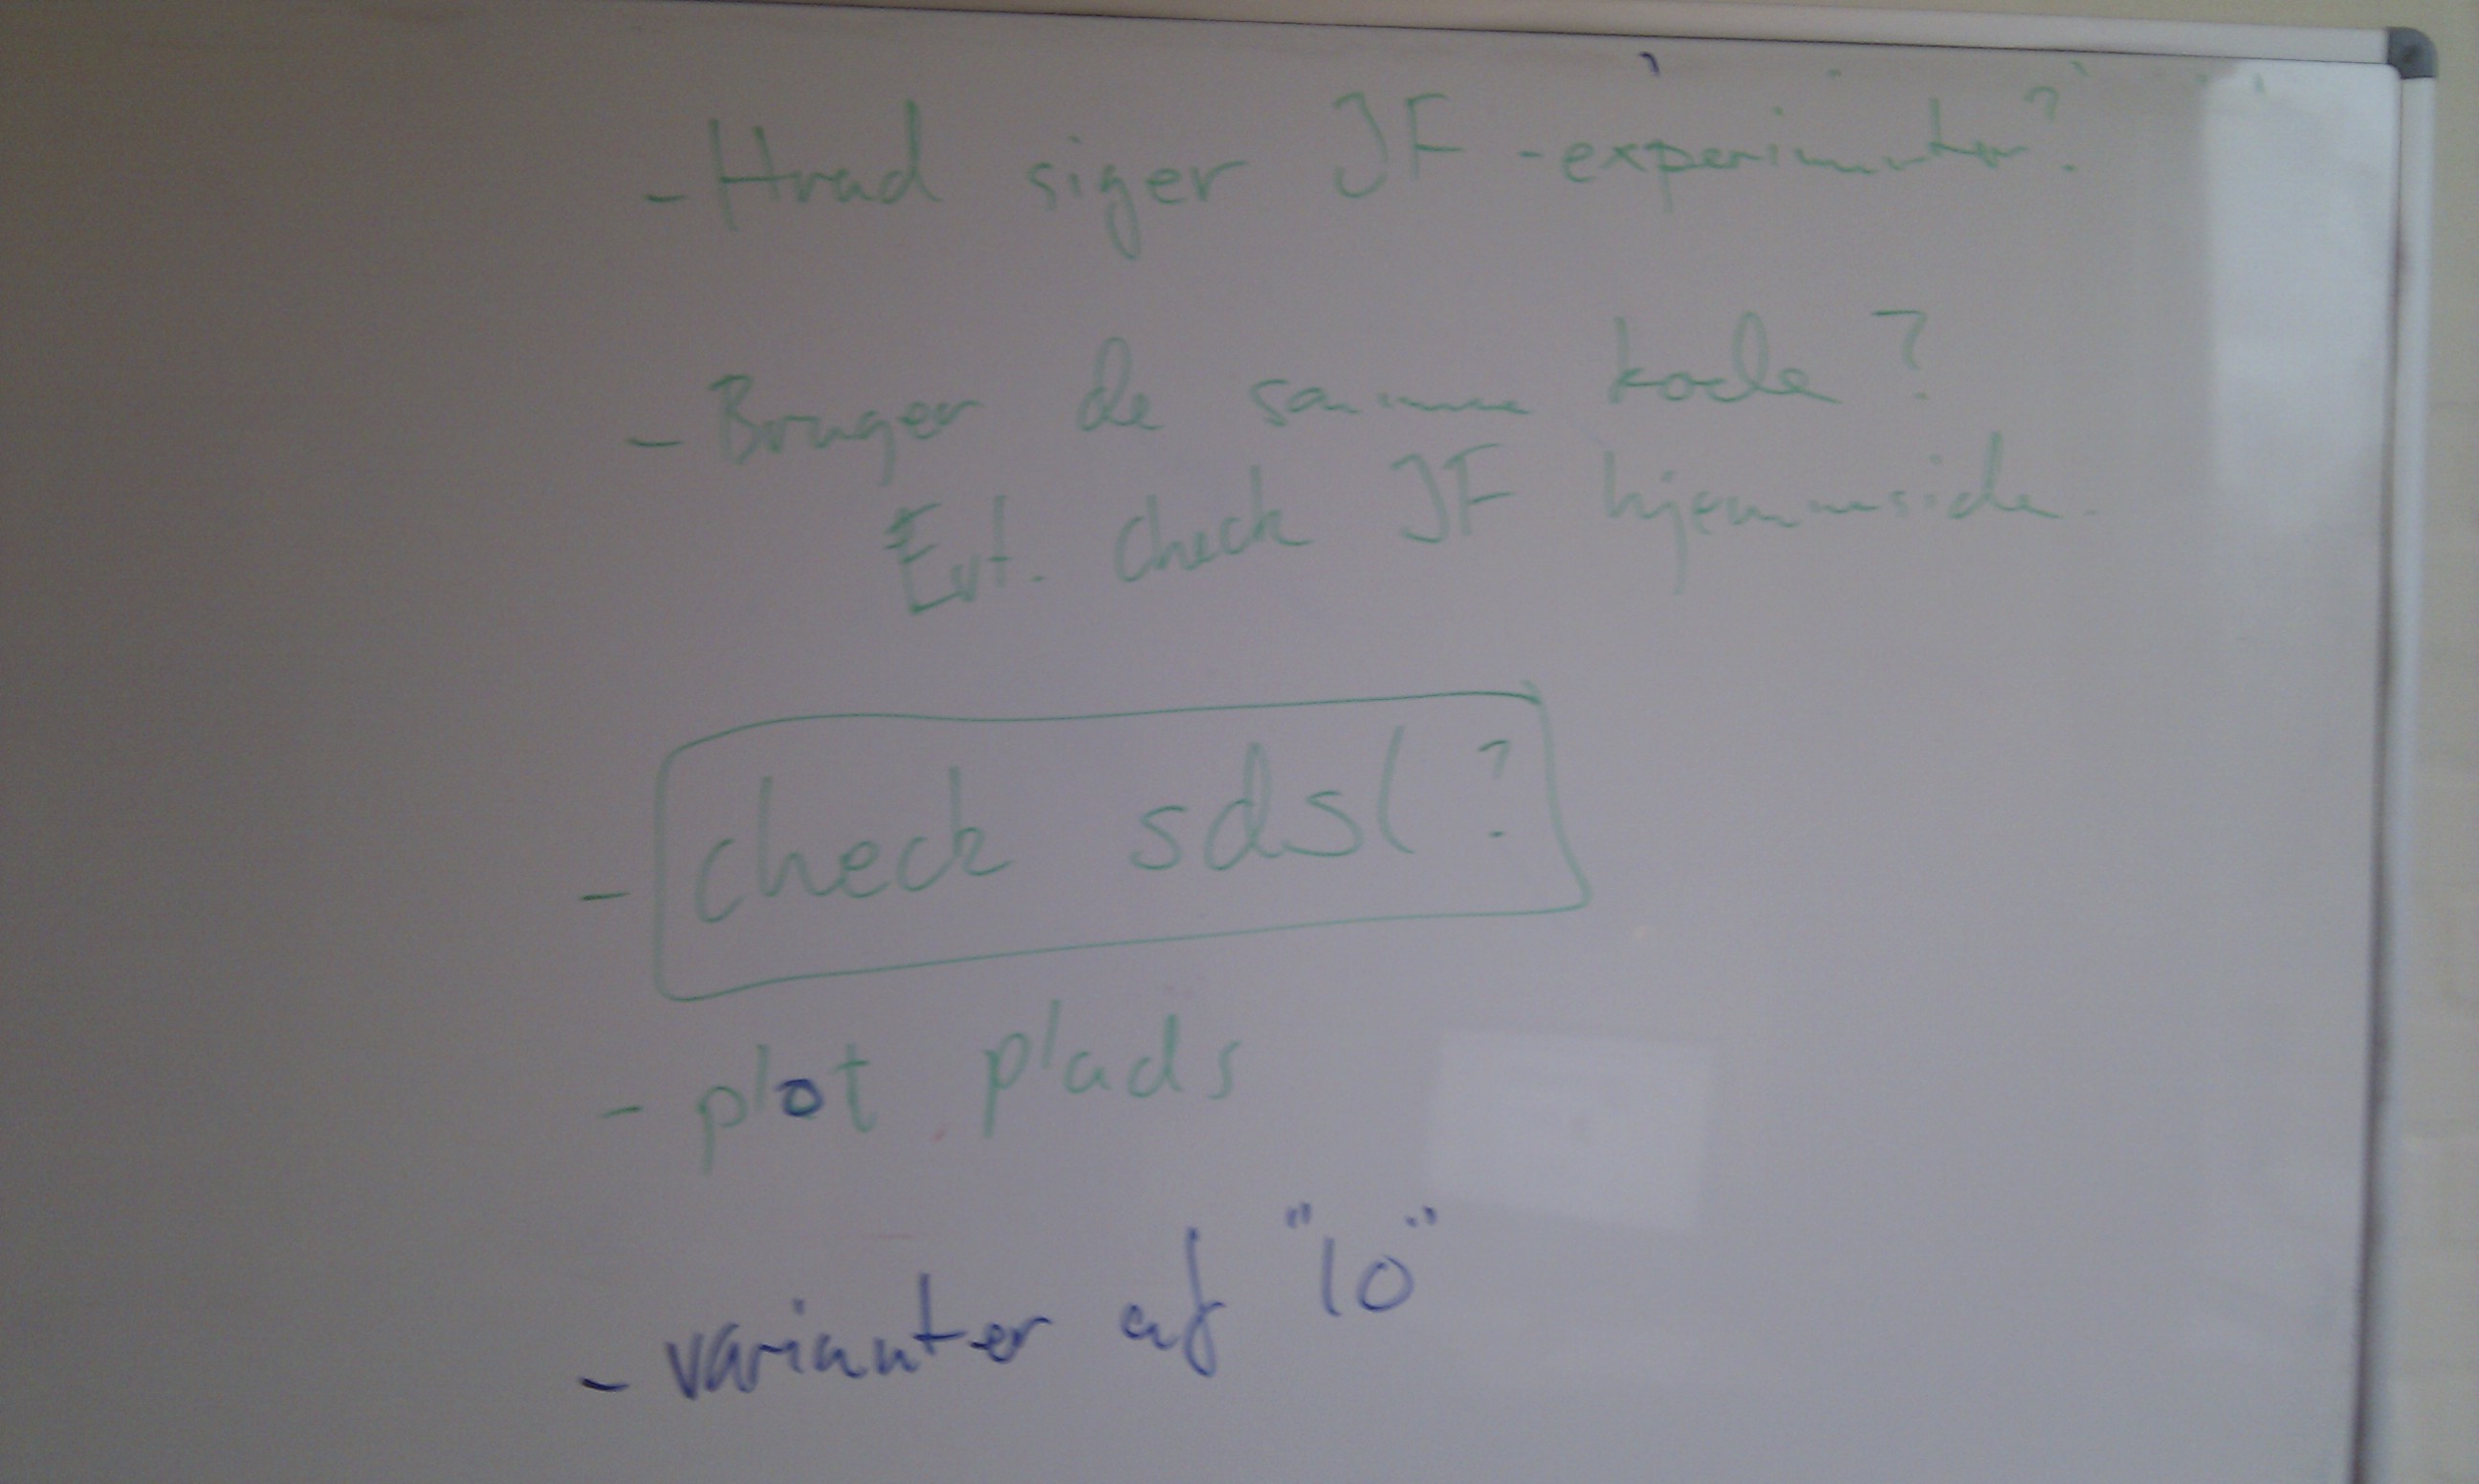 - Hvad siger JF -experimenter?
- Bruger de samme kode?
Evt. check JF hjemmeside.
- check sdsl?
- plot plads
- varianter af "10"